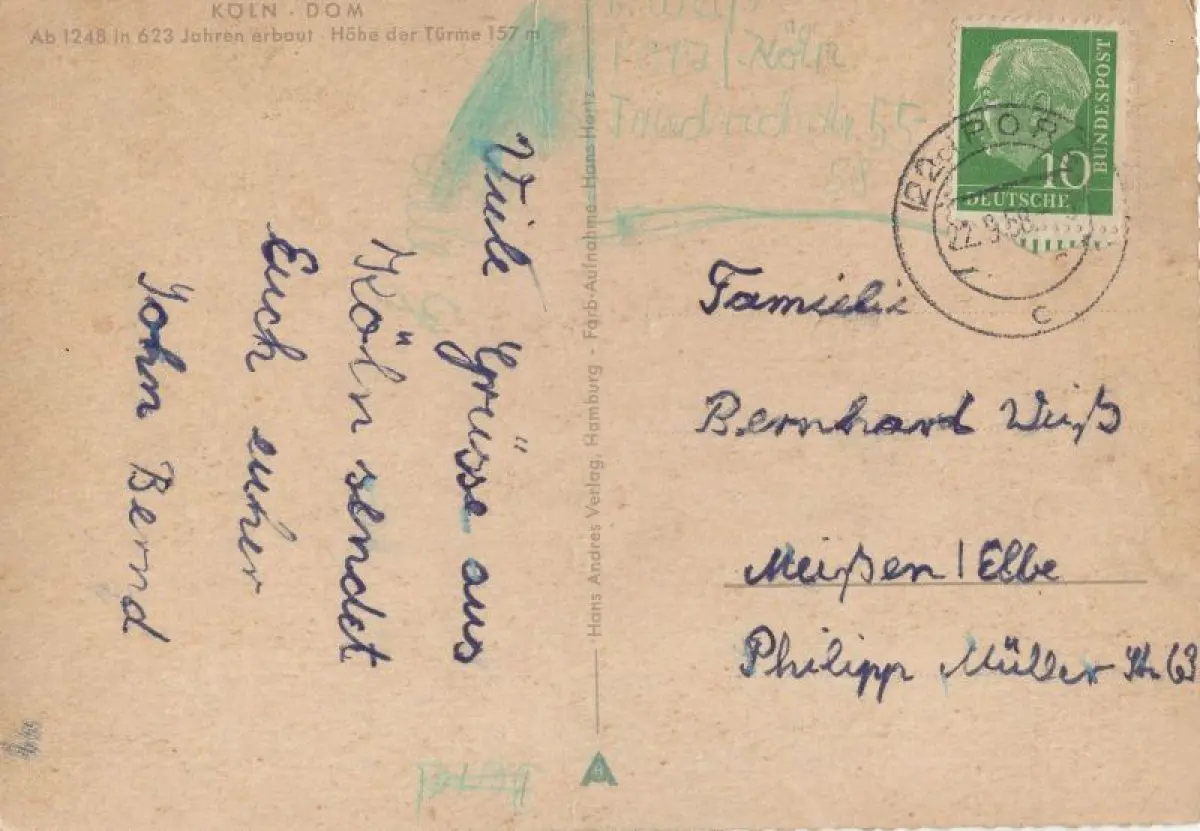 KÖLN · DOM
Ab 1248 in 623 Jahren erbaut · Höhe der Türme 157 m
Viele Grüsse aus
Köln sendet
Euch euher
Sohn Bernd
Hans Andres Verlag, Hamburg - Farb-Aufnahme: Hans Hartz
/ Köln
55
58
10
DEUTSCHE
BUNDESPOST
(22c) POR
22.9.58
c
Familie
Bernhard Weiß
Meißen / Elbe
Philipp Müller Str. 63